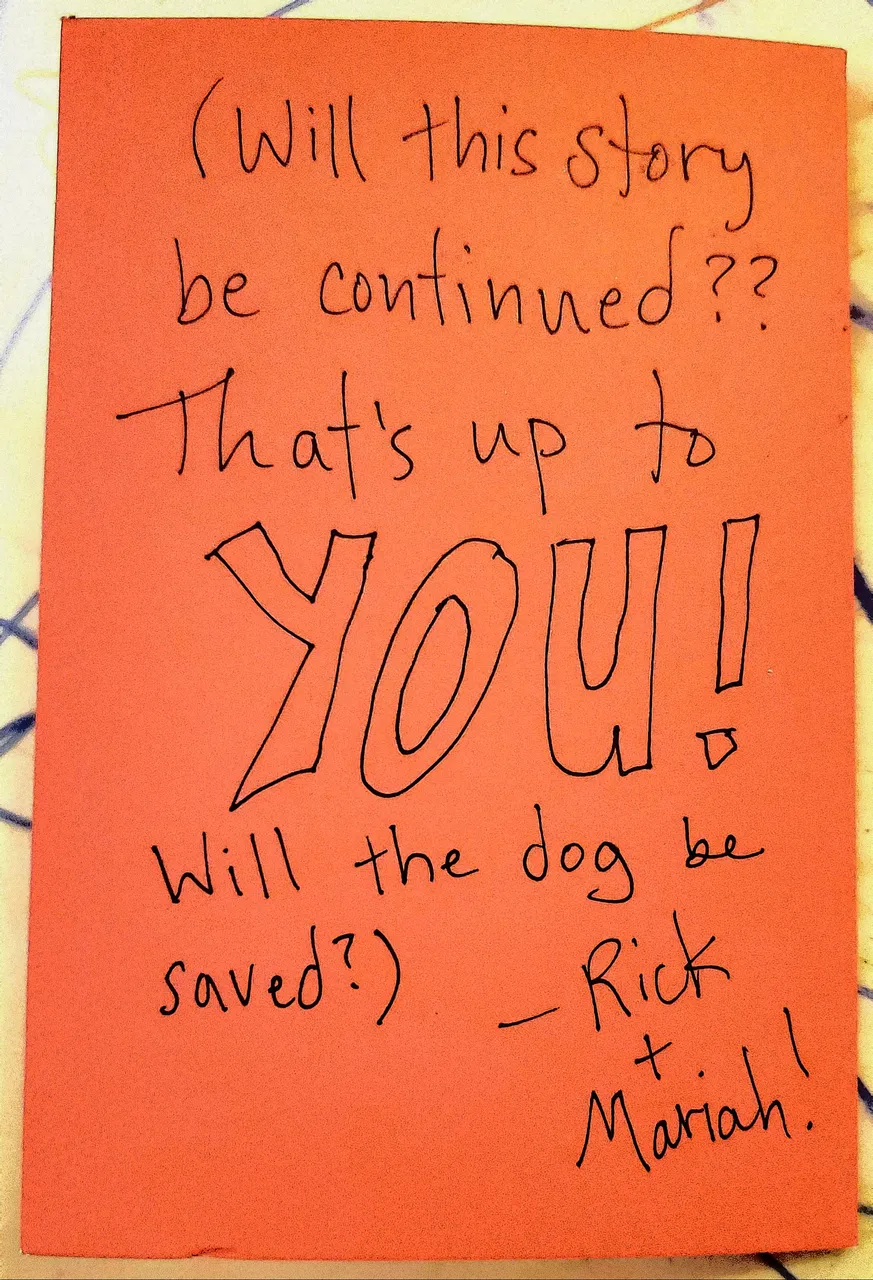 (Will this story
be continued??
That's up to
YOU!
Will the dog be
saved?) – Rick
+
Mariah!